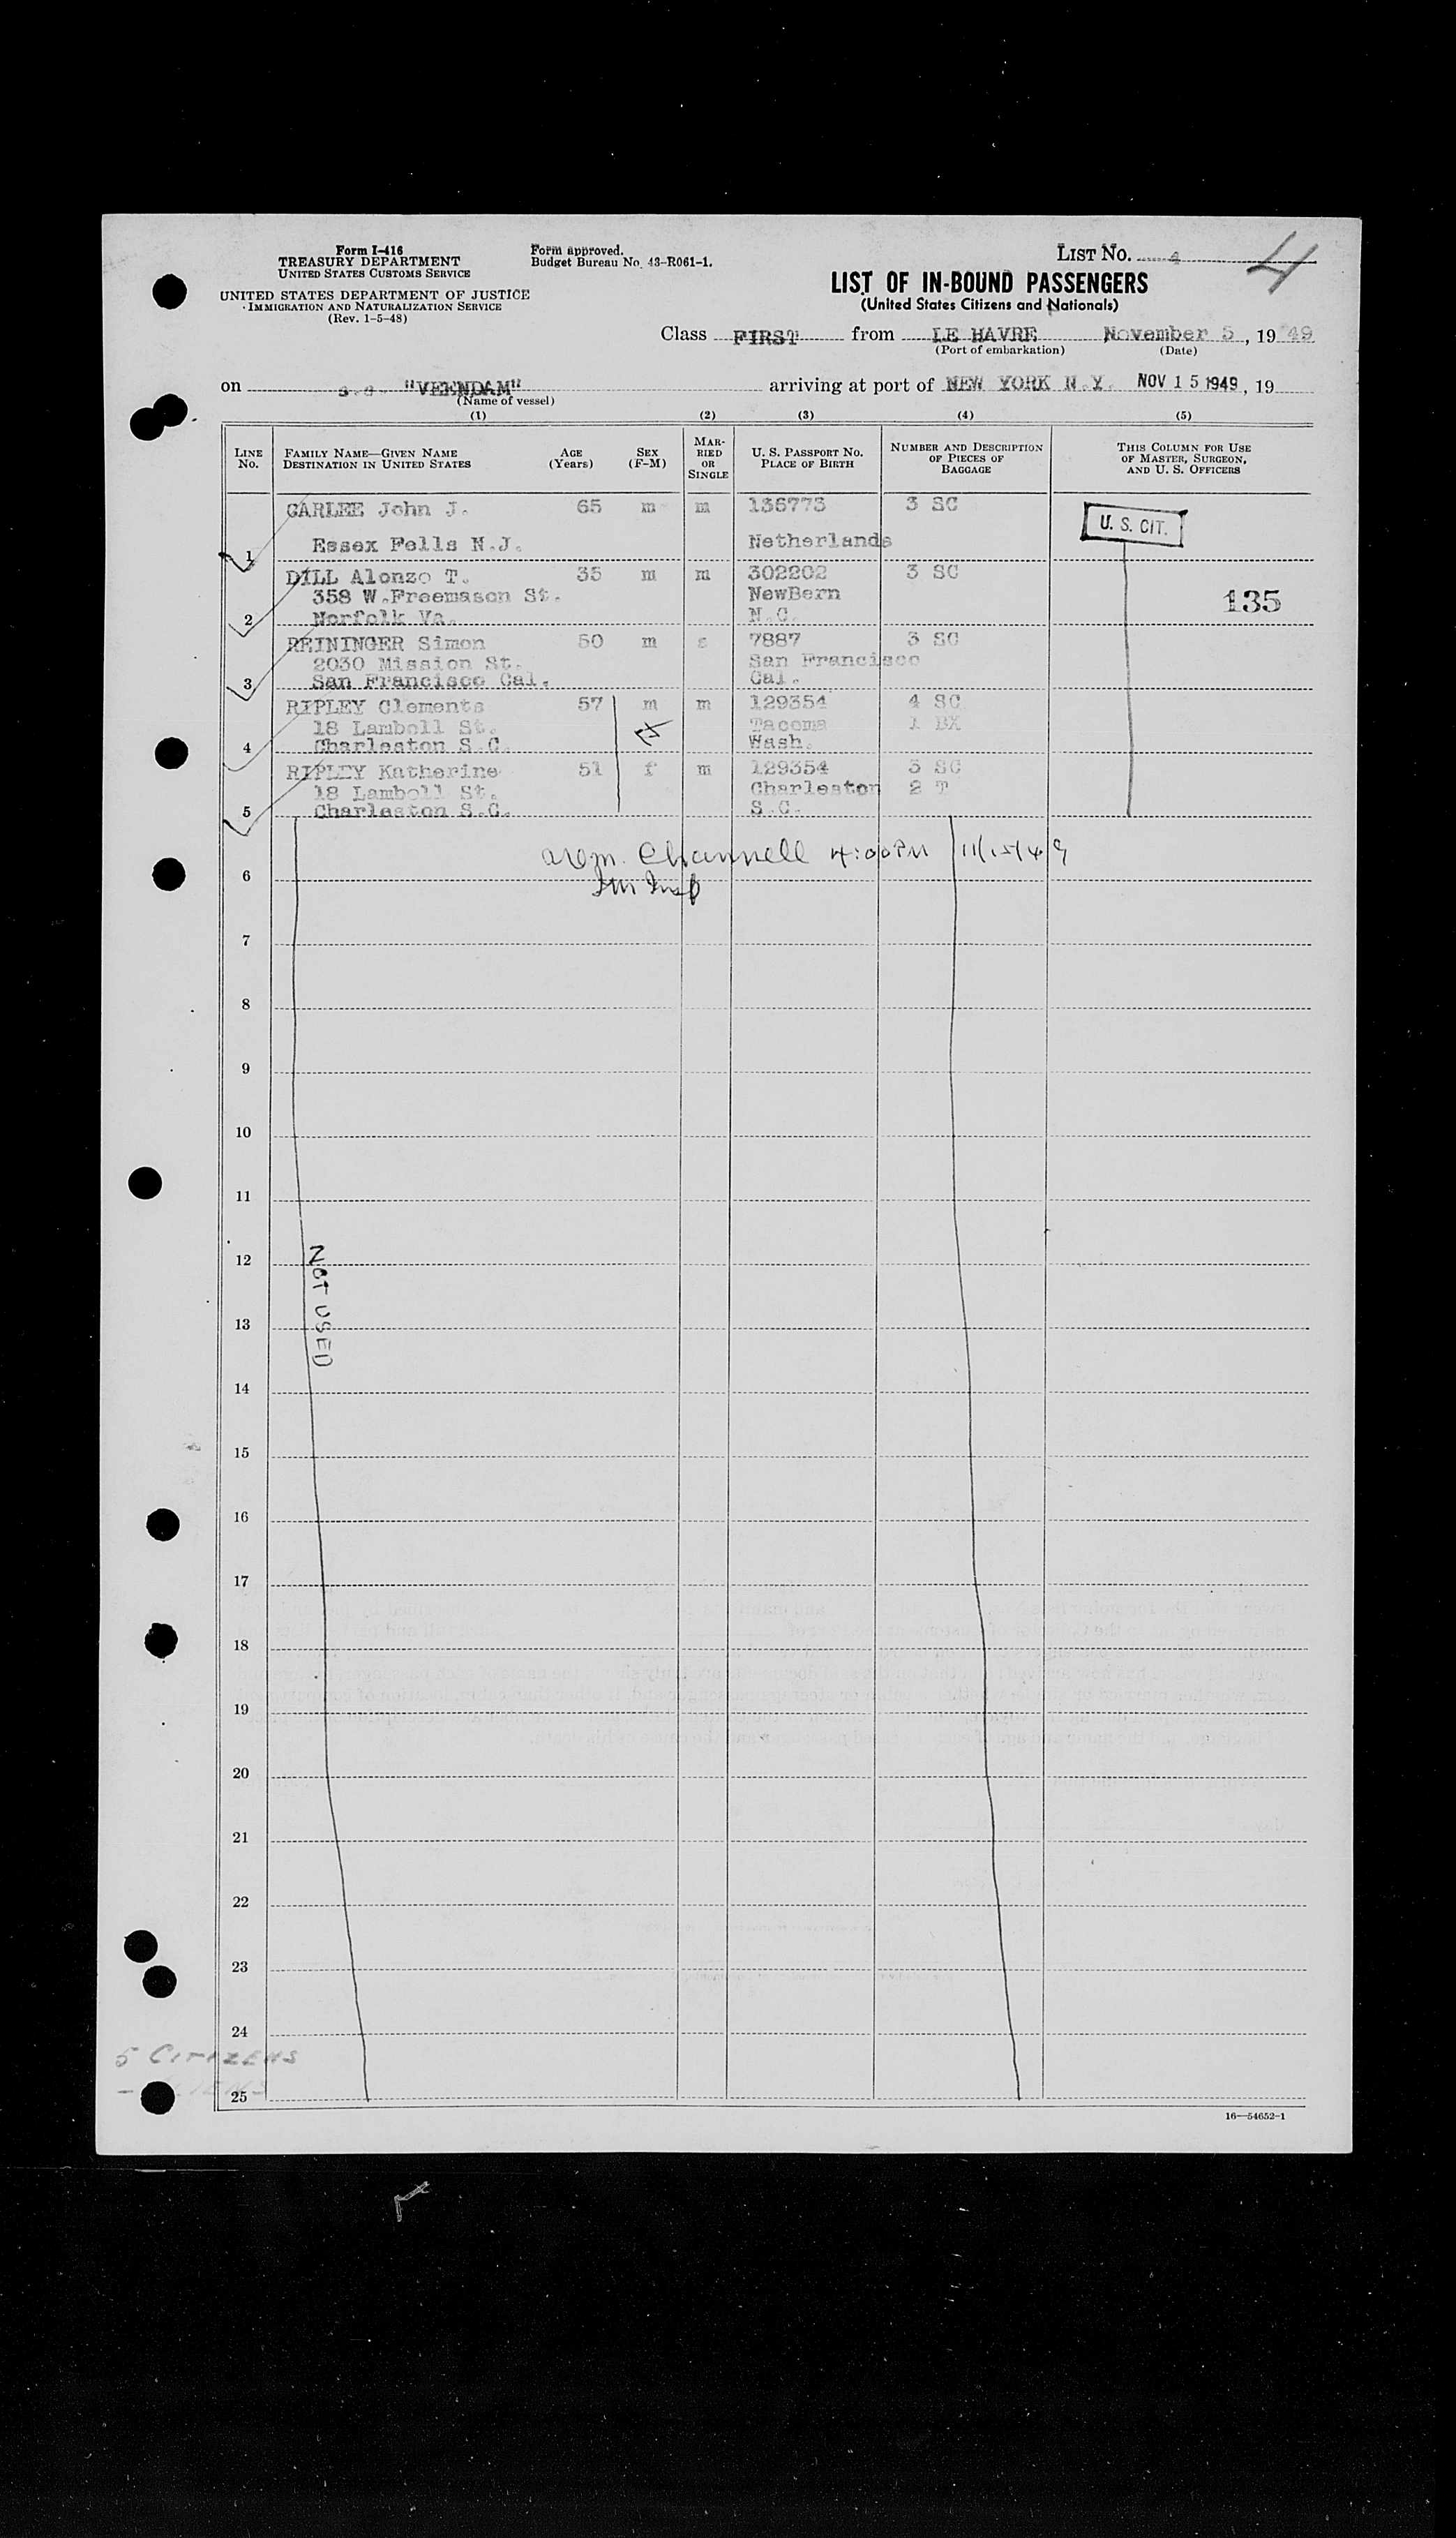 Form I-416
TREASURY DEPARTMENT
UNITED STATES CUSTOMS SERVICE
UNITED STATES DEPARTMENT OF JUSTICE
IMMIGRATION AND NATURALIZATION SERVICE
(Rev. 1-5-48)
Form approved.
Budget Bureau No. 43-R061-1.
LIST NO. 4
4
LIST OF IN-BOUND PASSENGERS
(United States Citizens and Nationals)
Class FIRST from LE HAVRE November 5, 1949
(Port of embarkation) (Date)
on s.s "VEENDAM" arriving at port of NEW YORK N.Y. NOV 15 1949, 19
(Name of vessel)
(1) (2) (3) (4) (5)
LINE NO. FAMILY NAME—GIVEN NAME DESTINATION IN UNITED STATES AGE (Years) SEX (F-M) MARRIED OR SINGLE U. S. PASSPORT NO. PLACE OF BIRTH NUMBER AND DESCRIPTION OF PIECES OF BAGGAGE THIS COLUMN FOR USE OF MASTER, SURGEON, AND U. S. OFFICERS
GARLEE John J. 65 m m 136773 3 SC
U. S. CIT.
Essex Fells N.J. Netherlands
1
DILL Alonzo T. 35 m m 302202 3 SC
358 W.Freemason St. NewBern
135
2 Norfolk Va. N.C.
REININGER Simon 50 m s 7887 3 SC
2030 Mission St. San Francisco
3 San Francisco Cal. Cal.
RIPLEY Clements 57 m m 129354 4 SC
18 Lamboll St. Tacoma 1 BX
4 Charleston S.C. Wash.
RIPLEY Katherine 51 f m 129354 3 SC
18 Lamboll St. Charleston 2 T
5 Charleston S.C. S.C.
Channell 4:00 PM 11/15/49
6 Imm Insp
7
8
9
10
11
12
NOT USED
13
14
15
16
17
18
19
20
21
22
23
24
5 CITIZENS
- ALIENS
25
16—54652-1